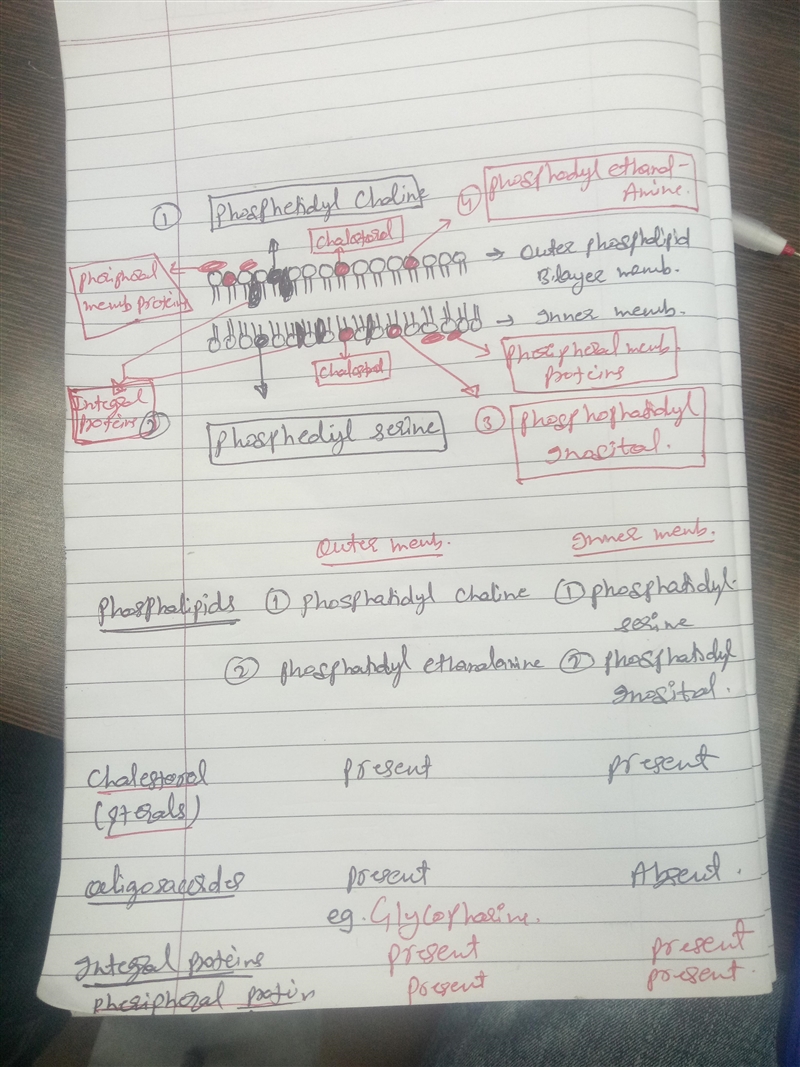 ① phosphetidyl choline
④ phosphadyl ethanol-
Amine.
Chalesterol
pheriphaeral
memb proteins
→ Outer phospholipid
Bilayer memb.
→ Inner memb.
Chalestrol
pheripheral memb.
proteins
Integral
proteins
② phosphediyl serine
③ phosphophatidyl
Inositol.
Outer memb.
Inner memb.
phospholipids ① phosphatidyl choline ① phosphatidyl-
serine
② phosphatidyl ethanalanine ② phosphatidyl
Inositol.
Chalesterol present present
(sterals)
oeligosacerdes present Absent.
eg. Glycophorine.
Integral proteins present present
pheripheral protin present present.